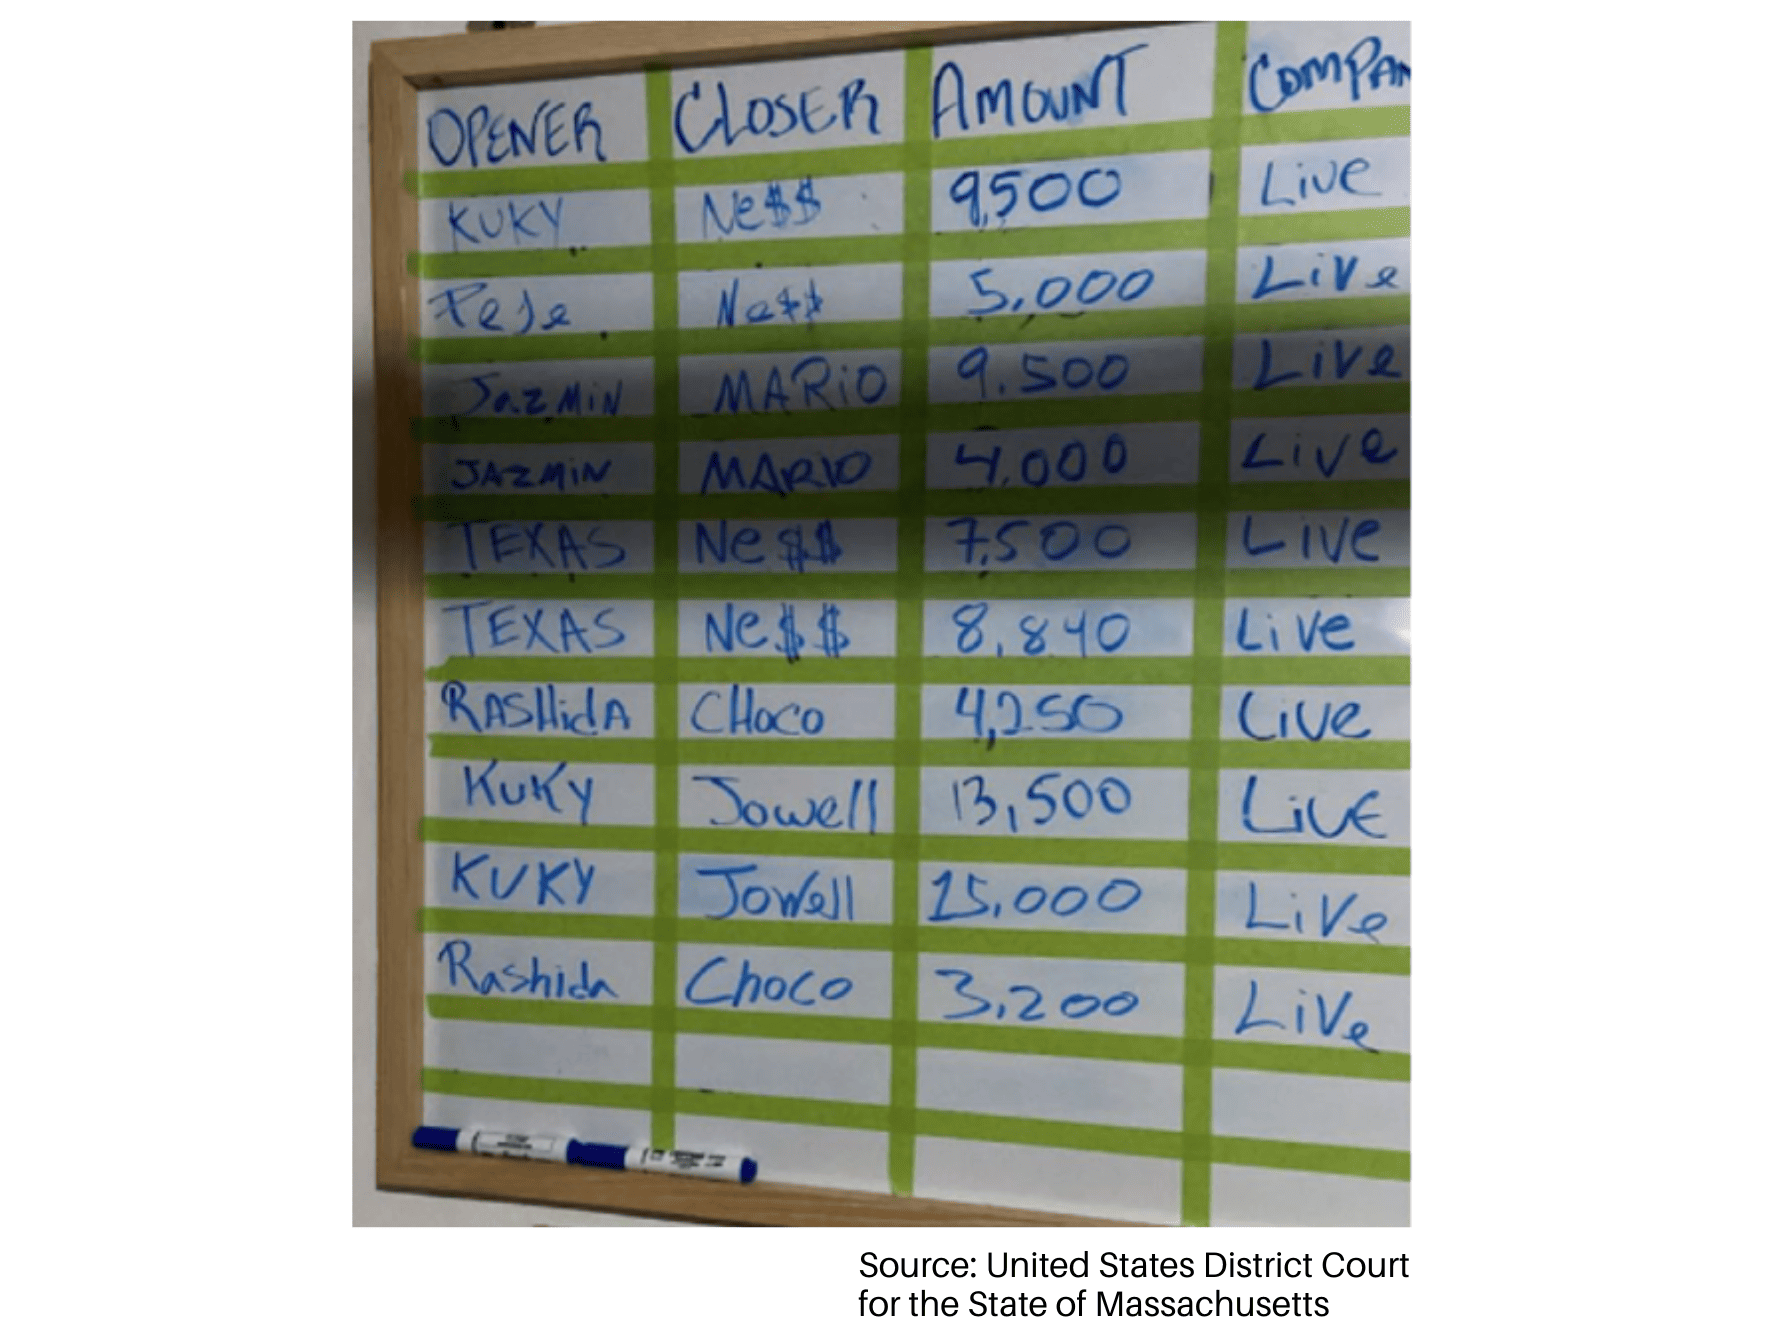 OPENER CLOSER AMOUNT COMPAN
KUKY Ne$$ 9,500 Live
PeJe Ne$$ 5,000 Live
JazMiN MARiO 9.500 Live
JAZMiN MARIO 4.000 Live
TEXAS Ne$$ 7,500 Live
TEXAS Ne$$ 8,840 Live
RASHidA CHoco 4,250 Live
KuKy Jowell 13,500 LivE
KUKY Jowell 15,000 LiVe
Rashida Choco 3,200 LiVe
Source: United States District Court
for the State of Massachusetts